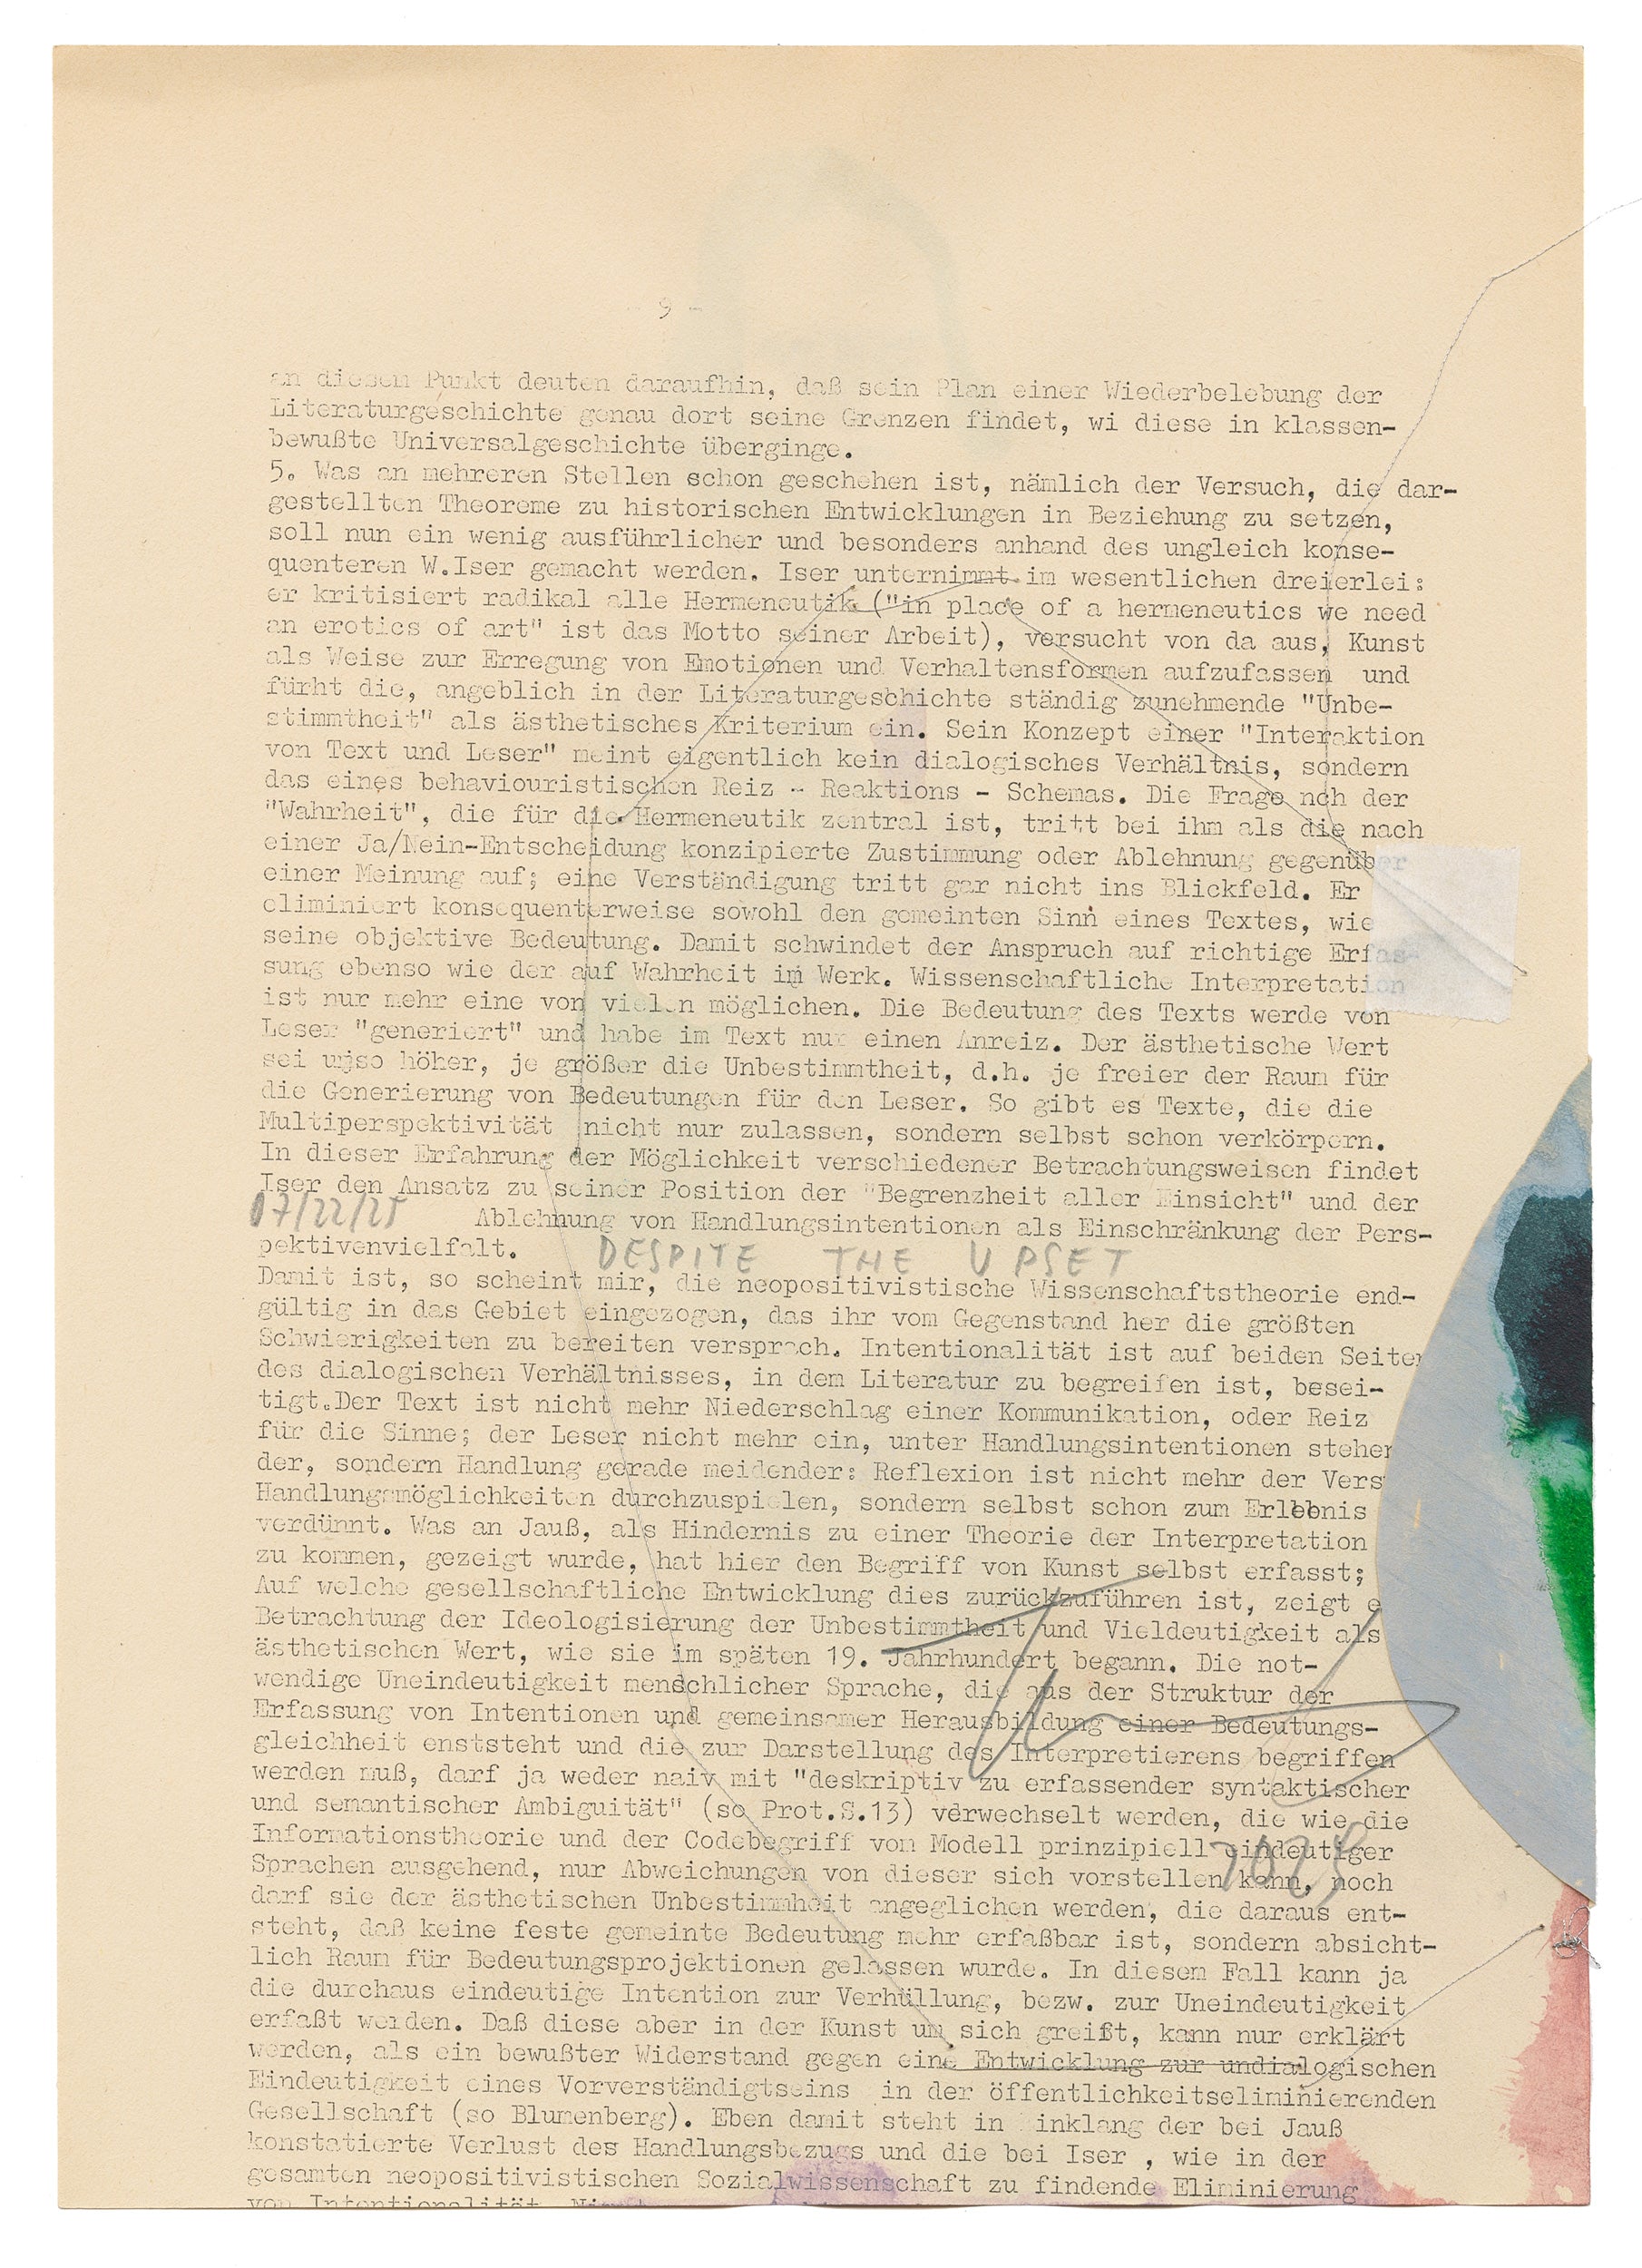 9 -
an diesen Punkt deuten daraufhin, daß sein Plan einer Wiederbelebung der
Literaturgeschichte genau dort seine Grenzen findet, wi diese in klassen-
bewußte Universalgeschichte überginge.
5. Was an mehreren Stellen schon geschehen ist, nämlich der Versuch, die dar-
gestellten Theoreme zu historischen Entwicklungen in Beziehung zu setzen,
soll nun ein wenig ausführlicher und besonders anhand des ungleich konse-
quenteren W.Iser gemacht werden. Iser unternimmt im wesentlichen dreierlei:
er kritisiert radikal alle Hermeneutik ("in place of a hermeneutics we need
an erotics of art" ist das Motto seiner Arbeit), versucht von da aus, Kunst
als Weise zur Erregung von Emotionen und Verhaltensformen aufzufassen und
fürht die, angeblich in der Literaturgeschichte ständig zunehmende "Unbe-
stimmtheit" als ästhetisches Kriterium ein. Sein Konzept einer "Interaktion
von Text und Leser" meint eigentlich kein dialogisches Verhältnis, sondern
das eines behaviouristischen Reiz - Reaktions - Schemas. Die Frage nch der
"Wahrheit", die für die Hermeneutik zentral ist, tritt bei ihm als die nach
einer Ja/Nein-Entscheidung konzipierte Zustimmung oder Ablehnung gegenüber
einer Meinung auf; eine Verständigung tritt gar nicht ins Blickfeld. Er
eliminiert konsequenterweise sowohl den gemeinten Sinn eines Textes, wie
seine objektive Bedeutung. Damit schwindet der Anspruch auf richtige Erfas-
sung ebenso wie der auf Wahrheit im Werk. Wissenschaftliche Interpretation
ist nur mehr eine von vielen möglichen. Die Bedeutung des Texts werde von
Leser "generiert" und habe im Text nur einen Anreiz. Der ästhetische Wert
sei umso höher, je größer die Unbestimmtheit, d.h. je freier der Raum für
die Generierung von Bedeutungen für den Leser. So gibt es Texte, die die
Multiperspektivität nicht nur zulassen, sondern selbst schon verkörpern.
In dieser Erfahrung der Möglichkeit verschiedener Betrachtungsweisen findet
Iser den Ansatz zu seiner Position der "Begrenzheit aller Einsicht" und der
07/22/25 Ablehnung von Handlungsintentionen als Einschränkung der Pers-
pektivenvielfalt.
DESPITE THE UPSET
Damit ist, so scheint mir, die neopositivistische Wissenschaftstheorie end-
gültig in das Gebiet eingezogen, das ihr vom Gegenstand her die größten
Schwierigkeiten zu bereiten versprach. Intentionalität ist auf beiden Seite
des dialogischen Verhältnisses, in dem Literatur zu begreifen ist, besei-
tigt.Der Text ist nicht mehr Niederschlag einer Kommunikation, oder Reiz
für die Sinne; der Leser nicht mehr ein, unter Handlungsintentionen stehen
der, sondern Handlung gerade meidender: Reflexion ist nicht mehr der Vers
Handlungsmöglichkeiten durchzuspielen, sondern selbst schon zum Erlebnis
verdünnt. Was an Jauß, als Hindernis zu einer Theorie der Interpretation
zu kommen, gezeigt wurde, hat hier den Begriff von Kunst selbst erfasst;
Auf welche gesellschaftliche Entwicklung dies zurückzuführen ist, zeigt e
Betrachtung der Ideologisierung der Unbestimmtheit und Vieldeutigkeit als
ästhetischen Wert, wie sie im späten 19. Jahrhundert begann. Die not-
wendige Uneindeutigkeit menschlicher Sprache, die aus der Struktur der
Erfassung von Intentionen und gemeinsamer Herausbildung einer Bedeutungs-
gleichheit enststeht und die zur Darstellung des Interpretierens begriffen
werden muß, darf ja weder naiv mit "deskriptiv zu erfassender syntaktischer
und semantischer Ambiguität" (so Prot.S.13) verwechselt werden, die wie die
Informationstheorie und der Codebegriff von Modell prinzipiell eindeutiger
Sprachen ausgehend, nur Abweichungen von dieser sich vorstellen kann, noch
2025
darf sie der ästhetischen Unbestimmheit angeglichen werden, die daraus ent-
steht, daß keine feste gemeinte Bedeutung mehr erfaßbar ist, sondern absicht-
lich Raum für Bedeutungsprojektionen gelassen wurde. In diesem Fall kann ja
die durchaus eindeutige Intention zur Verhüllung, bezw. zur Uneindeutigkeit
erfaßt werden. Daß diese aber in der Kunst um sich greift, kann nur erklärt
werden, als ein bewußter Widerstand gegen eine Entwicklung zur undialogischen
Eindeutigkeit eines Vorverständigtseins in der öffentlichkeitseliminierenden
Gesellschaft (so Blumenberg). Eben damit steht in inklang der bei Jauß
konstatierte Verlust des Handlungsbezugs und die bei Iser , wie in der
gesamten neopositivistischen Sozialwissenschaft zu findende Eliminierung
von Intentionalität.